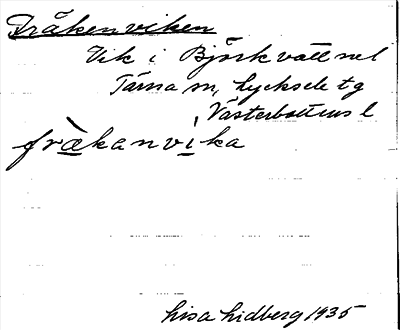 Fräkenviken
Vik i Björkvattnet
Tärna sn, Lycksele tg
Västerbottens l
frä̀kanvìka
Lisa Lidberg 1935